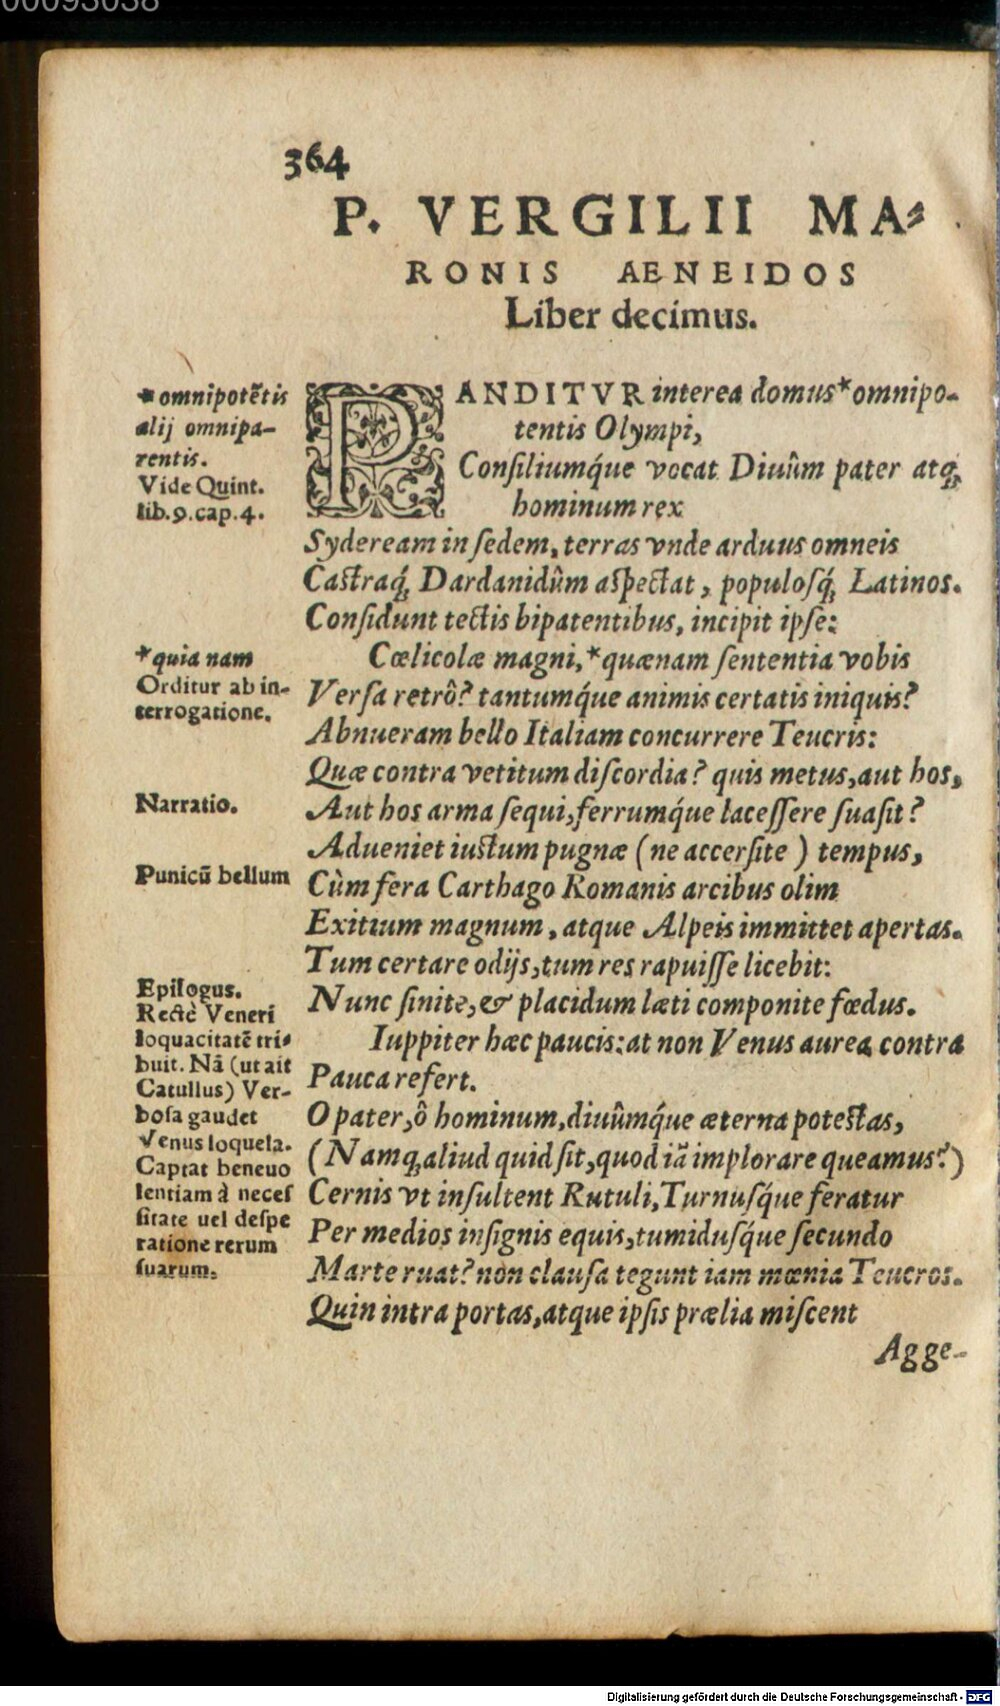 00093038
364
P. VERGILII MA⸗
RONIS AENEIDOS
Liber decimus.
*omnipotētis
alij omnipa-
rentis.
Vide Quint.
lib.9.cap.4.
PANDITVR interea domus*omnipo-
tentis Olympi,
Conſiliumq́ue vocat Diuûm pater atq;
hominum rex
Sydeream in ſedem, terras vnde arduus omneis
Caſtraq́; Dardanidûm aſpectat, populoſq́; Latinos.
Conſidunt tectis bipatentibus, incipit ipſe:
*quia nam
Orditur ab in-
terrogatione.
Cœlicolæ magni,*quænam ſententia vobis
Verſa retrô? tantumq́ue animis certatis iniquis?
Abnueram bello Italiam concurrere Teucris:
Quæ contra vetitum diſcordia? quis metus, aut hos,
Narratio.
Aut hos arma ſequi, ferrumq́ue laceſſere ſuaſit?
Adueniet iuſtum pugnæ (ne accerſite) tempus,
Punicū bellum
Cùm fera Carthago Romanis arcibus olim
Exitium magnum, atque Alpeis immittet apertas.
Tum certare odijs, tum res rapuiſſe licebit:
Epilogus.
Nunc ſinite, & placidum læti componite fœdus.
Rectè Veneri
loquacitatē tri⸗
buit. Nā (ut ait
Catullus) Ver-
boſa gaudet
Venus loquela.
Captat beneuo
lentiam à neceſ
ſitate uel deſpe
ratione rerum
ſuarum.
Iuppiter hæc paucis: at non Venus aurea contra
Pauca refert.
O pater, ô hominum, diuûmq́ue æterna poteſtas,
(Namq; aliud quid ſit, quod iā implorare queamus?)
Cernis vt inſultent Rutuli, Turnuſq́ue feratur
Per medios inſignis equis, tumiduſq́ue ſecundo
Marte ruat? non clauſa tegunt iam mœnia Teucros.
Quin intra portas, atque ipſis prælia miſcent
Agge-
Digitalisierung gefördert durch die Deutsche Forschungsgemeinschaft - DFG